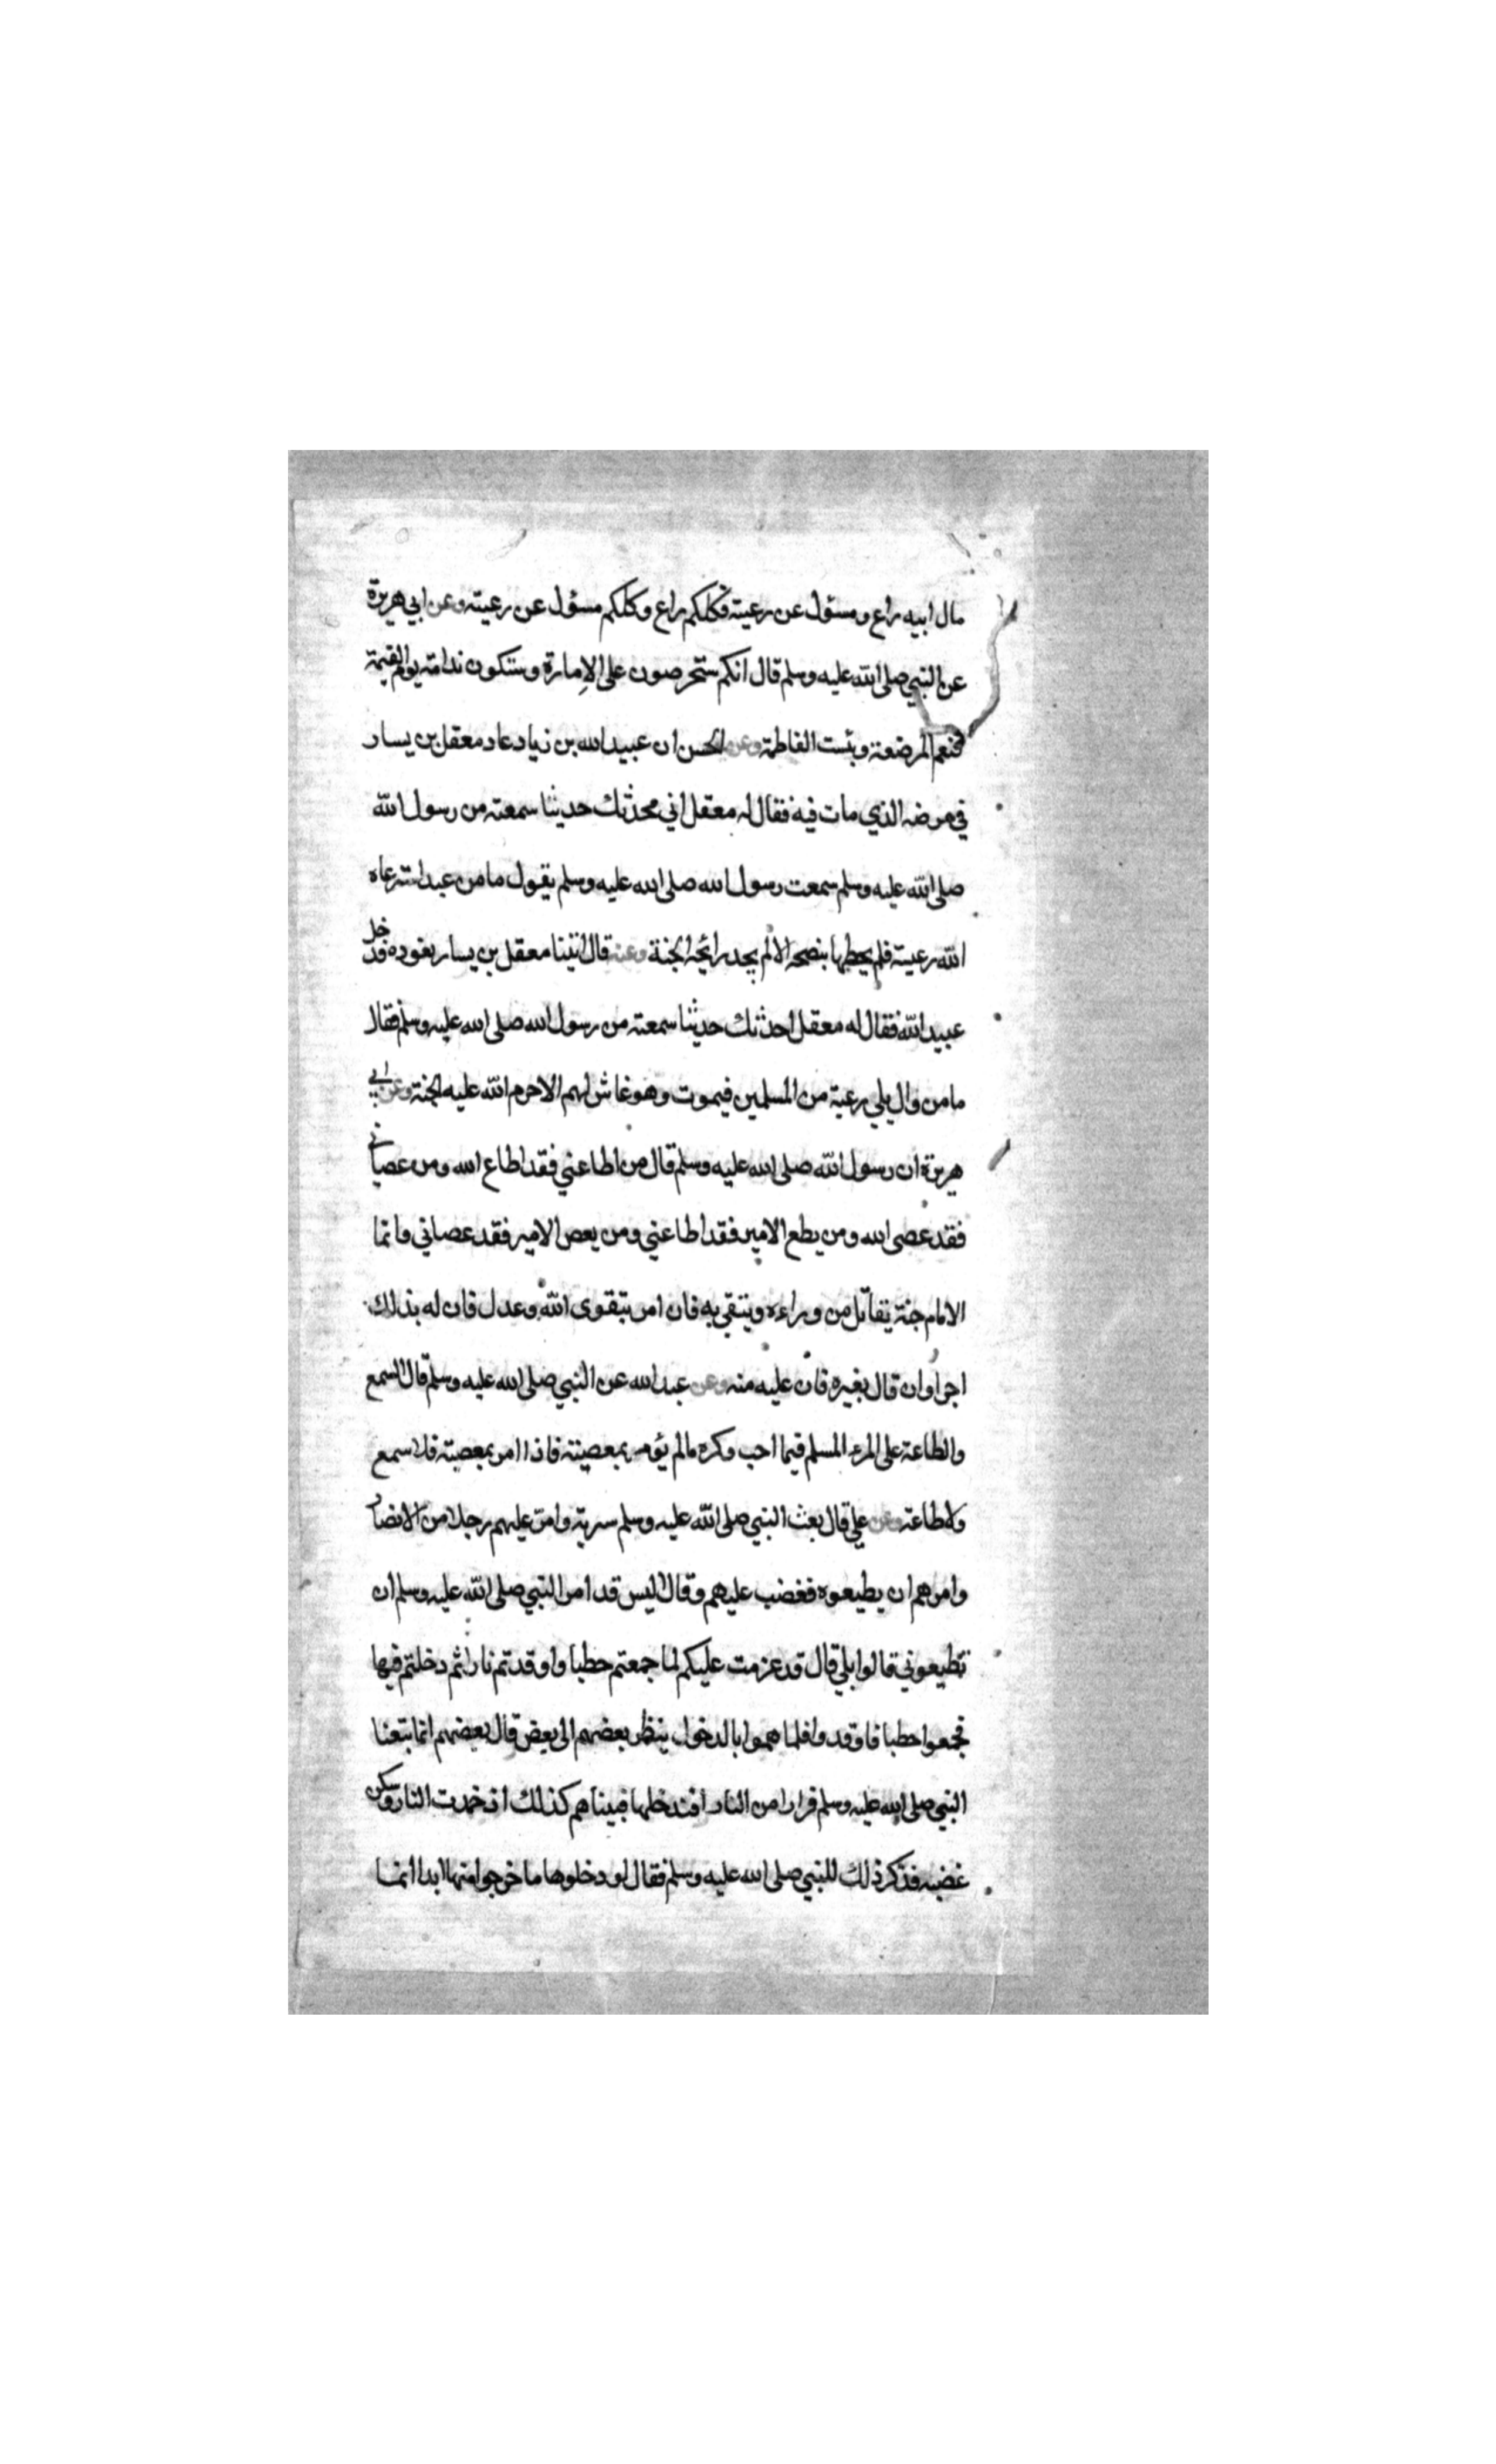 مال ابيه راع ومسؤل عن رعيته فكلكم راع وكلكم مسؤل عن رعيته وعن ابي هريرة
عن النبي صلى الله عليه وسلم قال انكم ستحرصون على الامارة وستكون ندامة يوم القيمة
فنعم المرضعة وبئست الفاطمة وعن الحسن ان عبيد الله بن زياد عاد معقل بن يسار
في مرضه الذي مات فيه فقال له معقل اني محدثك حديثا سمعته من رسول الله
صلى الله عليه وسلم سمعت رسول الله صلى الله عليه وسلم يقول ما من عبد استرعاه
الله رعية فلم يحطها بنصحه الا لم يجد رائحة الجنة وعنه قال اتينا معقل بن يسار نعوده فدخل
عبيد الله فقال له معقل احدثك حديثا سمعته من رسول الله صلى الله عليه وسلم فقال
ما من وال يلي رعية من المسلمين فيموت وهو غاش لهم الا حرم الله عليه الجنة وعن ابي
هريرة ان رسول الله صلى الله عليه وسلم قال من اطاعني فقد اطاع الله ومن عصاني
فقد عصى الله ومن يطع الامير فقد اطاعني ومن يعص الامير فقد عصاني وانما
الامام جنة يقاتل من وراءه ويتقي به فان امر بتقوى الله وعدل فان له بذلك
اجرا وان قال بغيره فان عليه منه وعن عبد الله عن النبي صلى الله عليه وسلم قال السمع
والطاعة على المرء المسلم فيما احب وكره ما لم يؤمر بمعصية فاذا امر بمعصية فلا سمع
ولا طاعة وعن علي قال بعث النبي صلى الله عليه وسلم سرية وامر عليهم رجلا من الانصار
وامرهم ان يطيعوه فغضب عليهم وقال اليس قد امر النبي صلى الله عليه وسلم ان
تطيعوني قالوا بلي قال قد عزمت عليكم لما جمعتم حطبا واوقدتم نارا ثم دخلتم فيها
فجمعوا حطبا فاوقدوا فلما هموا بالدخول ينظر بعضهم الى بعض قال بعضهم انما تبعنا
النبي صلى الله عليه وسلم فرارا من النار افندخلها فبيناهم كذلك اذ خمدت النار وسكن
غضبه فذكر ذلك للنبي صلى الله عليه وسلم فقال لو دخلوها ما خرجوا منها ابدا انما